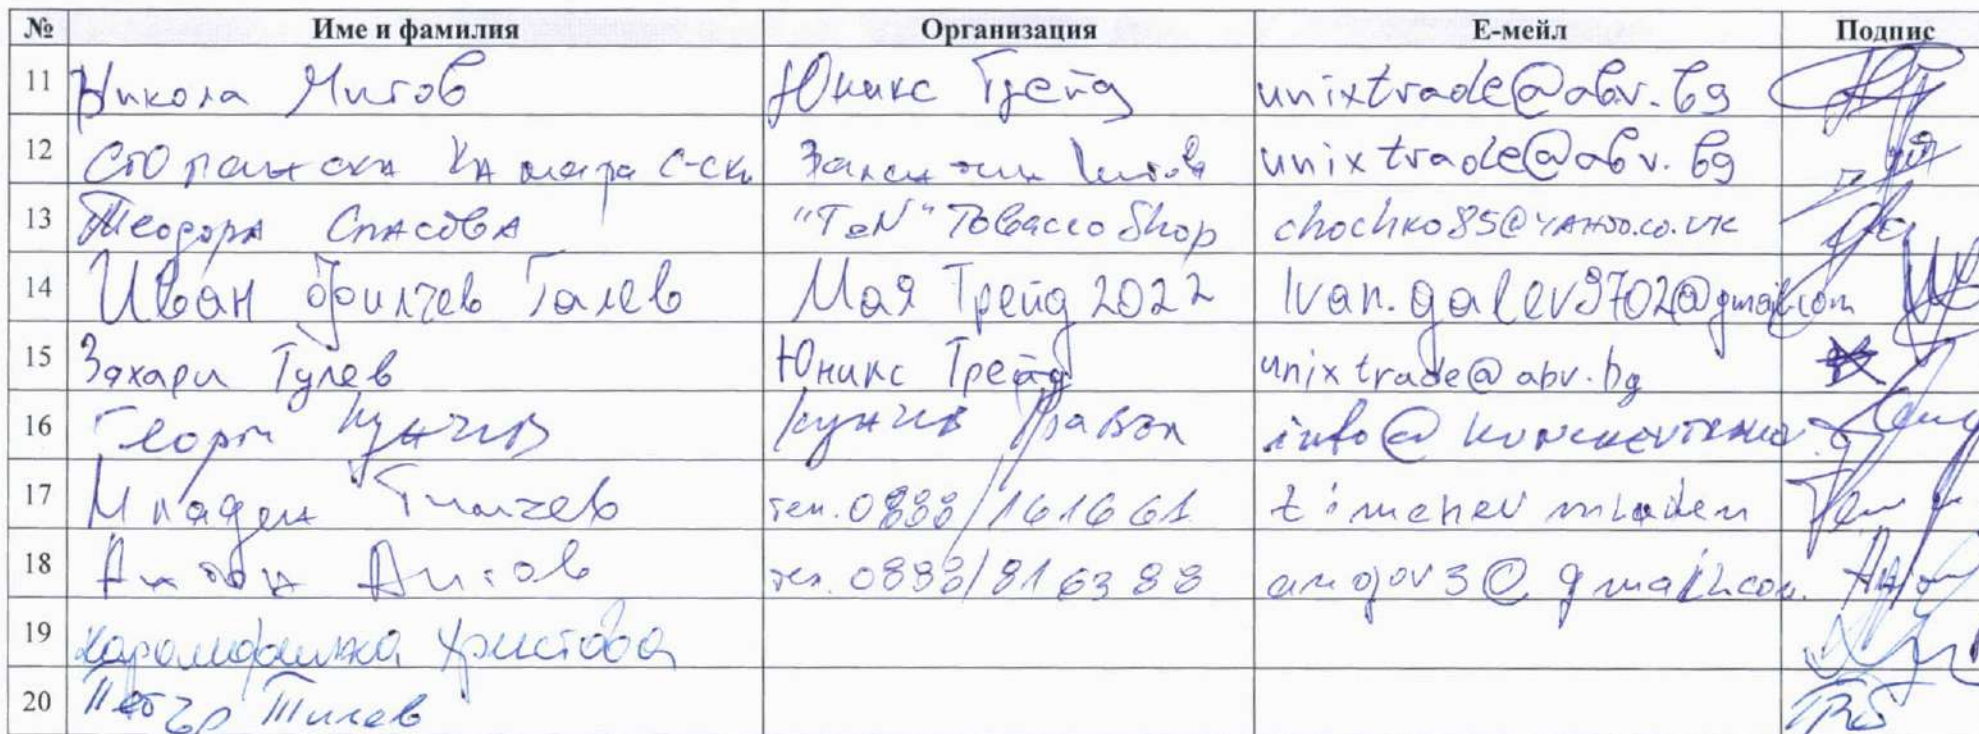 № Име и фамилия Организация Е-мейл Подпис
11 Никола Митов Юникс Трейд unixtrade@abv.bg
12 Стопанска Камара С-ска unixtrade@abv.bg
13 Теодора Спасова "TeN" Tobacco Shop chochko85@YAHOO.co.UK
14 Иван Филчев Галев Мая Трейд 2022 Ivan.galev9702@gmail.com
15 Захари Гулев Юникс Трейд unixtrade@abv.bg
16 Георги Кунчев Кунчев info@
17 Младен Тимчев тел. 0888/161661 timchev mladen
18 Антон Ангов тел. 0898/816388 angov3@gmail.com
19 Карамфилка Христова
20 Петър Тилев